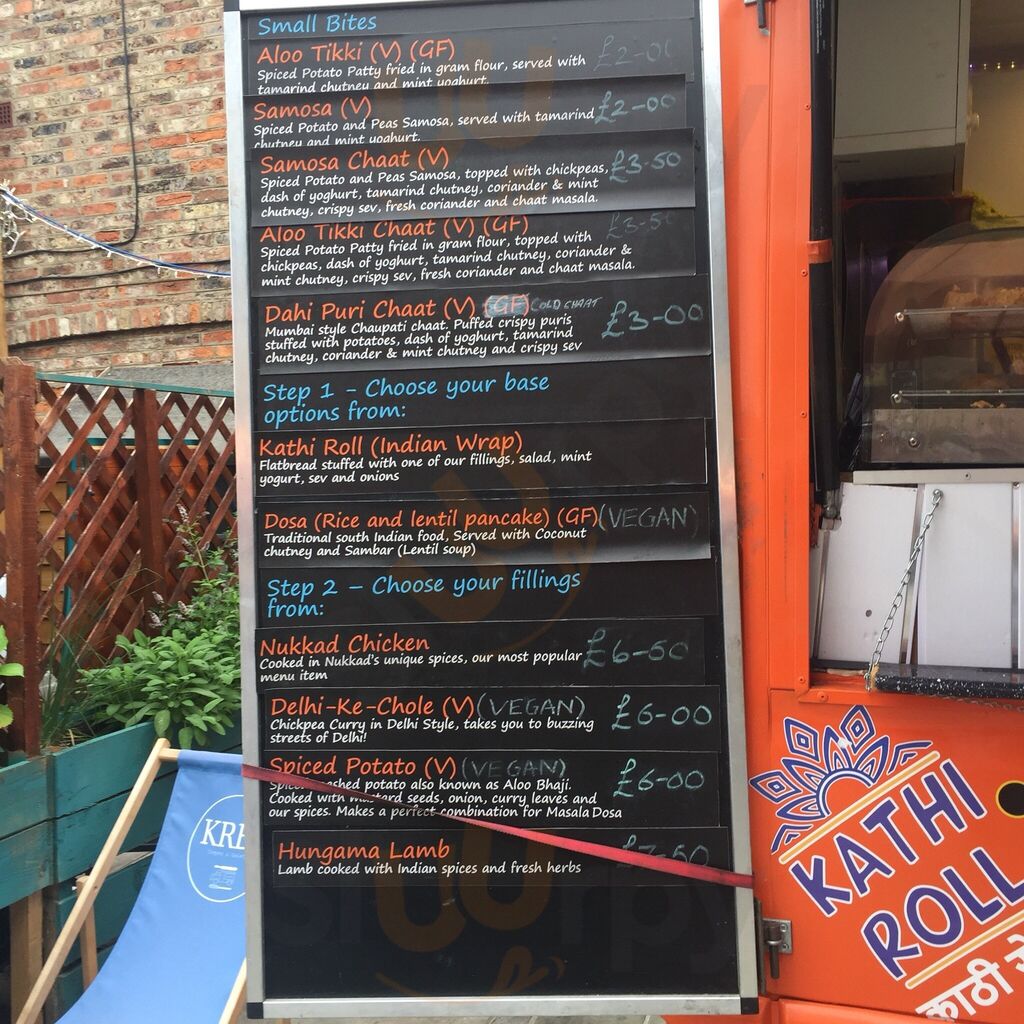 Small Bites
Aloo Tikki (V) (GF) £2-00
Spiced Potato Patty fried in gram flour, served with
tamarind chutney and mint yoghurt.
Samosa (V) £2-00
Spiced Potato and Peas Samosa, served with tamarind
chutney and mint yoghurt.
Samosa Chaat (V) £3-50
Spiced Potato and Peas Samosa, topped with chickpeas,
dash of yoghurt, tamarind chutney, coriander & mint
chutney, crispy sev, fresh coriander and chaat masala.
Aloo Tikki Chaat (V) (GF) £3-50
Spiced Potato Patty fried in gram flour, topped with
chickpeas, dash of yoghurt, tamarind chutney, coriander &
mint chutney, crispy sev, fresh coriander and chaat masala.
Dahi Puri Chaat (V) (GF) COLD CHAAT £3-00
Mumbai style Chaupati chaat. Puffed crispy puris
stuffed with potatoes, dash of yoghurt, tamarind
chutney, coriander & mint chutney and crispy sev
Step 1 - Choose your base
options from:
Kathi Roll (Indian Wrap)
Flatbread stuffed with one of our fillings, salad, mint
yogurt, sev and onions
Dosa (Rice and lentil pancake) (GF) (VEGAN)
Traditional south Indian food, Served with Coconut
chutney and Sambar (Lentil soup)
Step 2 – Choose your fillings
from:
Nukkad Chicken £6-50
Cooked in Nukkad's unique spices, our most popular
menu item
Delhi-Ke-Chole (V) (VEGAN) £6-00
Chickpea Curry in Delhi Style, takes you to buzzing
streets of Delhi!
Spiced Potato (V) (VEGAN) £6-00
mashed potato also known as Aloo Bhaji.
Cooked with mustard seeds, onion, curry leaves and
our spices. Makes a perfect combination for Masala Dosa
Hungama Lamb £7-50
Lamb cooked with Indian spices and fresh herbs
KRE
KATHI
ROLL
काठी